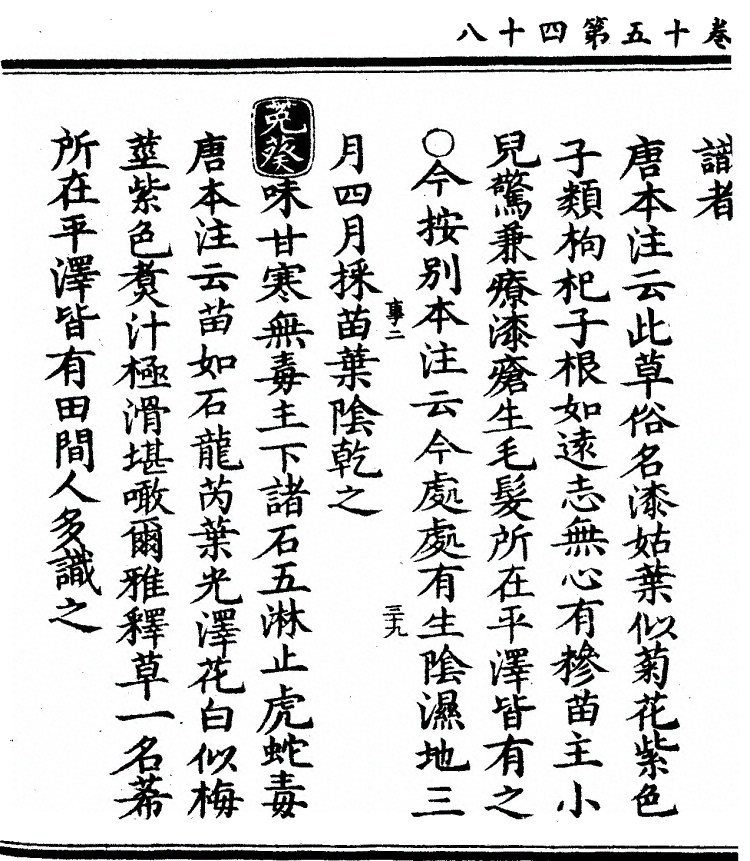 卷十五第四十八
諸者
唐本注云此草俗名漆姑葉似菊花紫色
子類枸杞子根如遠志無心有糝苗主小
兒驚兼療漆瘡生毛髮所在平澤皆有之
○今按別本注云今處處有生陰濕地三
事二
三九
月四月採苗葉陰乾之
菟葵味甘寒無毒主下諸石五淋止虎蛇毒
唐本注云苗如石龍芮葉光澤花白似梅
莖紫色煑汁極滑堪噉爾雅釋草一名莃
所在平澤皆有田間人多識之